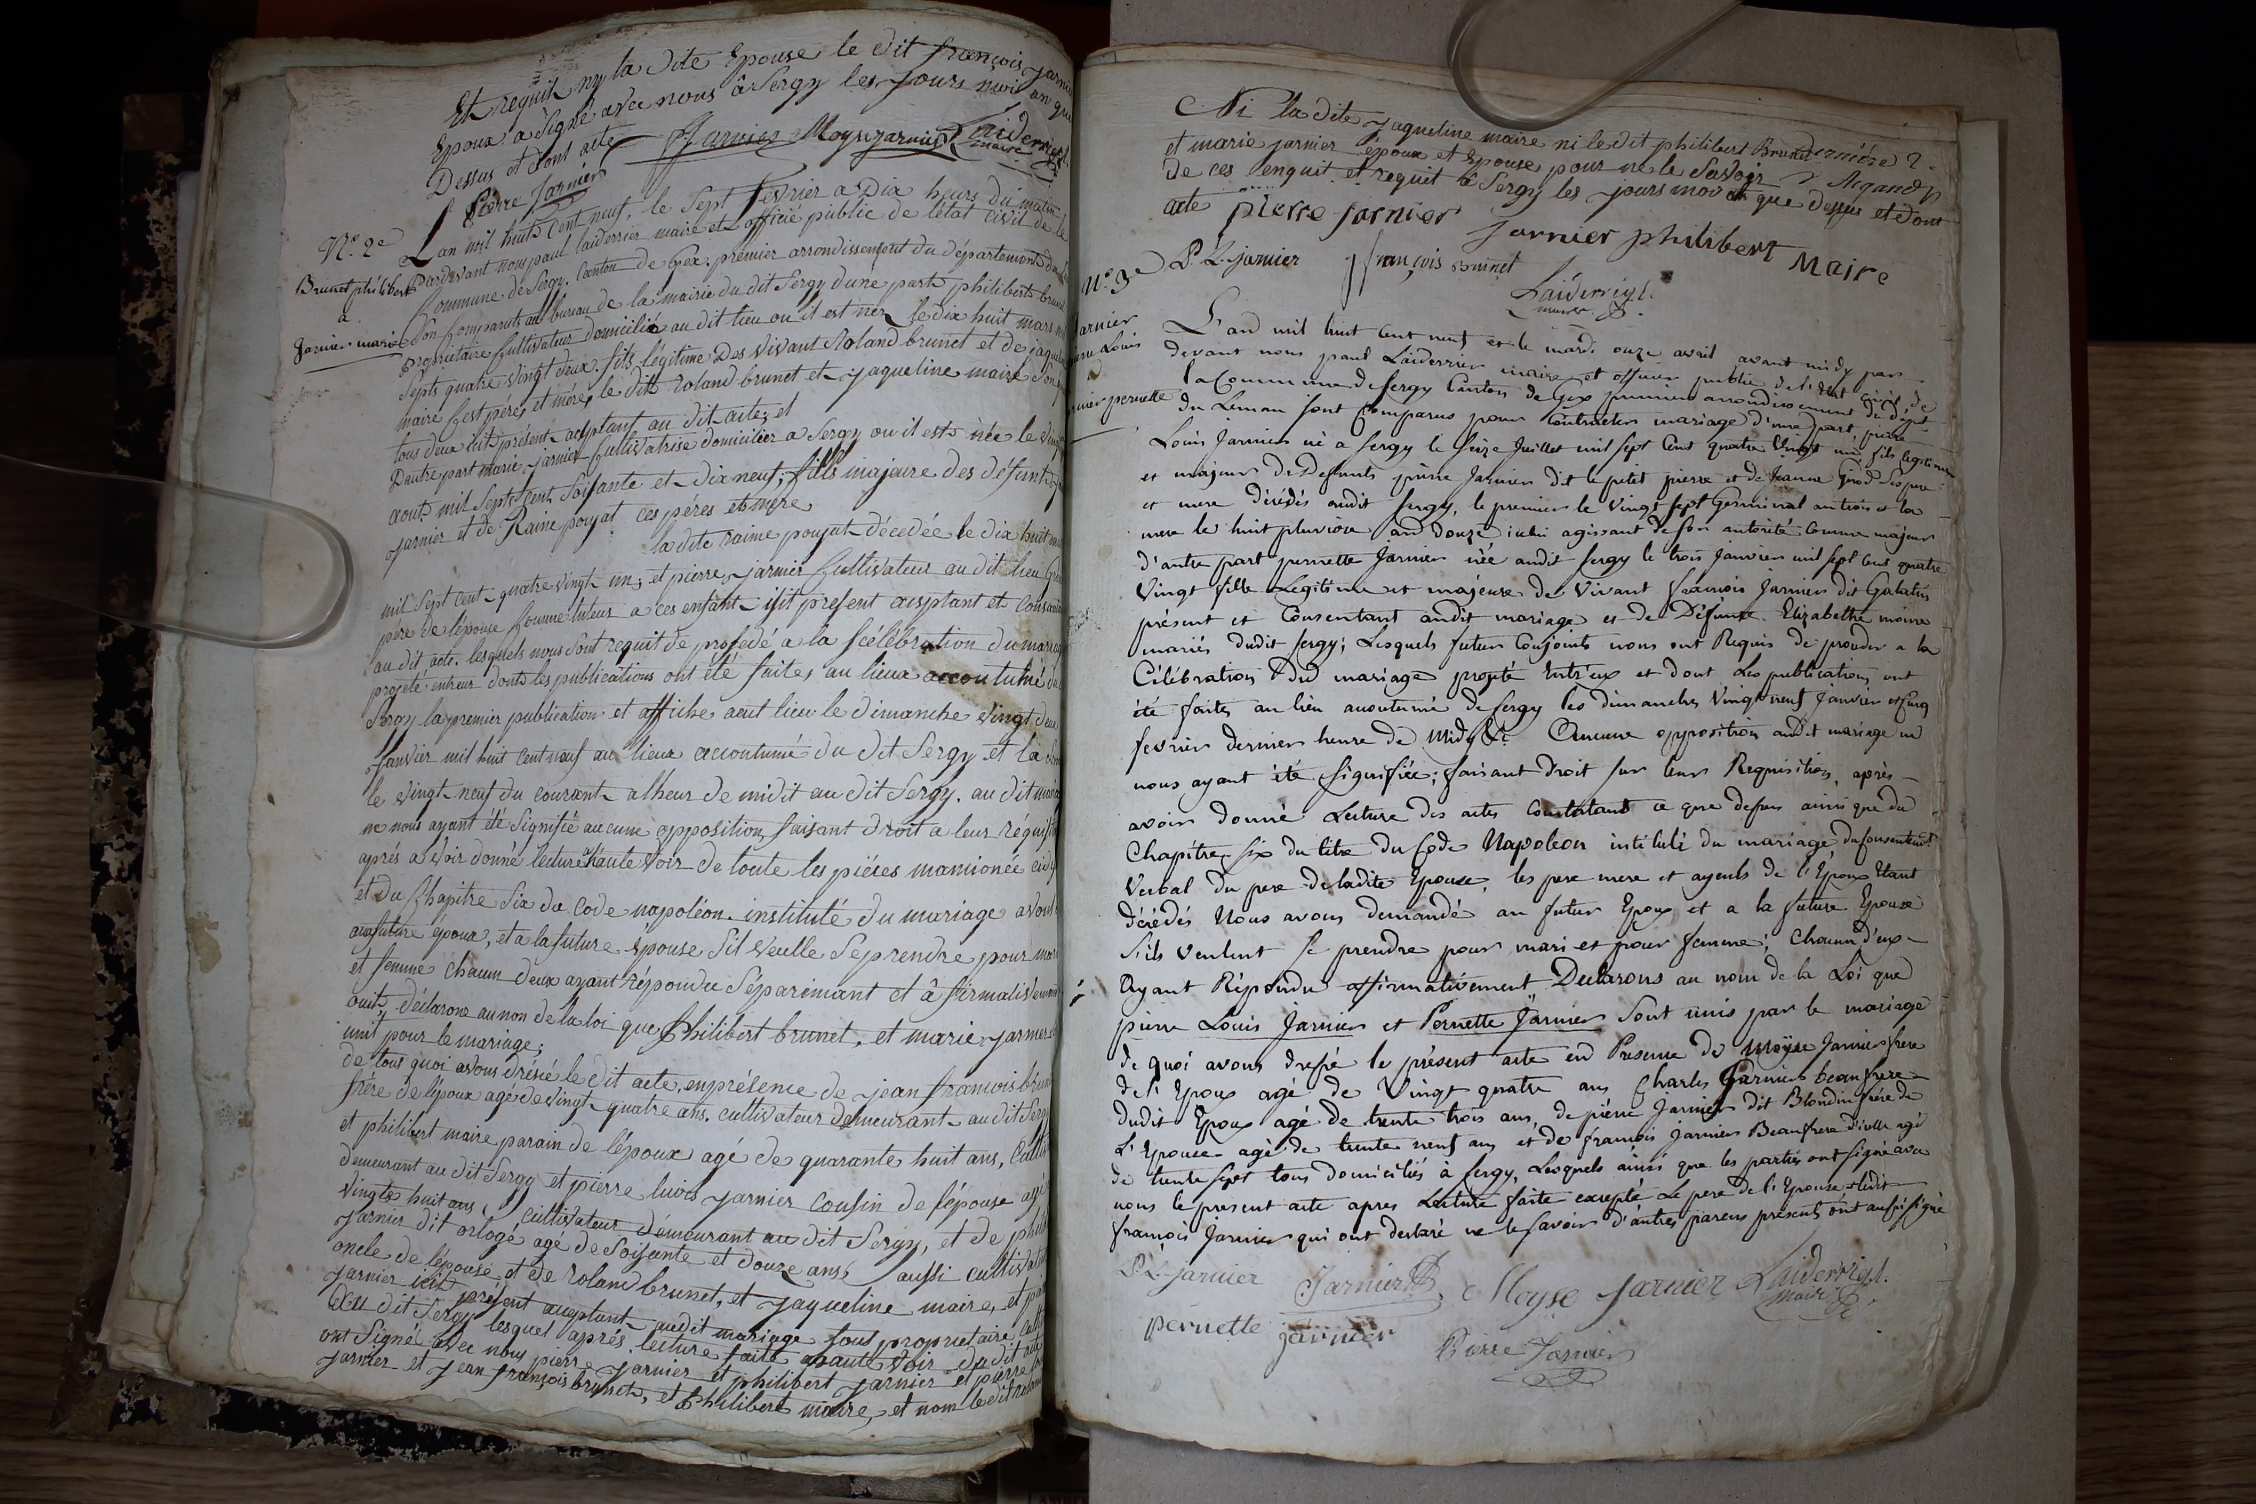 Et requit ny la dite Epouse le dit françois jarnier
Epoux a Signé avec nous â Sergy les jours mois an que
Dessus et dont acte
Jarnier Moyse jarnier Laiderrier
maire
Pierre Jarnier
N.º 2e
Brunet philibert
a
Jarnier marie
L'an mil huit Cent neuf, le Sept Fevrier a Dix heurs du matin
Pardevant nous paul laiderrier maire et officié public de létat civil de la
Commune de Sergy. Canton de Gex. premier arrondissement du département du
Son Comparut au bureau de la mairie du dit Sergy dune part philibert brunet
Propriétaire Cultivateur domicilié au dit lieu ou il est nez le dix huit mars mil
septs quatre vingt deux. fils légitime Des vivant Roland brunet et de jaqueline
maire Cest pére et mére, le dit roland brunet et jaqueline maire Son
tous deux icit présent aceptant au dit acte; et
Dautre part marie jarnier Cultivatrise domicilier a Sergy ou il est née le
aout mil Sept Cent Soisante et dix neuf, fille majeure des défunt
jarnier et de Raine poujat ces péres et mere
la dite raine poujat décedée le dix huit
mil Sept cent quatre vingt un; et pierre jarnier Cultivateur au dit lieu
pére de lépouse Comme tuteur a ces enfant icit present aceptant et Consentant
au dit acte. lesquels nous Sont requit de procedé a la Celébration du mariage
projeté entreux dont les publications ont été faites, au lieux accoutumé
Sergy la premier publication et affiche aeut lieu le dimanche vingt deux
Janvier mil huit cent neuf au lieux accoutumé du dit Sergy et la
le vingt neuf du courant alheur de midit au dit Sergy. au dit
ne nous ayant été Signifié aucune opposition, faisant droit a leur réquisition
aprés avoir donné lecture âHaute Voir De toute les piéces manionée
et Du Chapitre Six du Code napoléon. instituté du mariage avons
aufuture époux, et a la future épouse Sil veulle Seprendre pour mari
et femme chacun deux ayant répondu Séparémant et â firmativement
ouit, déclarons au non de la loi que philibert brunet, et marie jarnier
unit pour le mariage;
de tous quoi avons drésié le dit acte, en présence de jean francois brunet
frére de lépoux agé de vingt quatre ans. cultivateur demeurant au dit Sergy
et philibert maire parain de lépoux agé de quarante huit ans, Cultivateur
demeurant au dit Sergy et pierre luois jarnier cousin de lépouse agé
vingts huit ans, cultivateur démeurant au dit Sergy, et de philibert
jarnier dit orlogé agé de Soisante et douze ans aussi cultivateur
oncle de lépouse et de roland brunet, et jaqueline maire, et
jarnier icit présent aceptant audit mariage tous propriétaire
Du dit Sergy lesquel aprés lecture faite ahaute voir du dit acte
ont Signé avec nous pierre jarnier et philibert jarnier et pierre
jarnier et jean françois brunet, et philibert maire, et nom le dit roland
Ni la dite jaqueline maire ni le dit philibert Brunet
et marie jarnier époux et Epouse pour ne le Savoir
de ces enquit et requit â Sergy les jours mois et que dessus et dont
acte pierre jarnier jarnier philibert Maire
P. L. jarnier françois brunet
Laiderrier
maire
N.º 3e
Jarnier
pierre Louis
a
Jarnier pernette
L'an mil huit cent neuf et le mardi onze avril avant midy par
devant nous paul Laiderrier maire et officier public de l'etat civil, de
la Commune de Sergy Canton de Gex premier arrondissement du dépt
du Leman sont Comparus pour Contracter mariage d'une part, pierre
Louis Jarnier né a Sergy le seize Juillet mil sept Cent quatre vingt un fils legitime
et majeur des defunts pierre Jarnier dit le petit pierre et de Jeanne Girod ses pere
et mere décédés audit Sergy, le premier le vingt sept Germinal an trois et la
mere le huit pluviose an douze; icelui agissant de son autorité Comme majeur
d'autre part pernette Jarnier née audit Sergy le trois Janvier mil sept cent quatre
vingt fille Legitime et majeure de vivant francois Jarnier dit Galatin
présent et Consentant audit mariage et de Défunte Elizabeth maire
mariés dudit Sergy; Lesquels futur Conjoints nous ont Requis de proceder a la
Célébration du mariage projeté Entr'eux et dont Les publications ont
été faites au lieu accoutumé de Sergy les dimanches vingt neuf Janvier et Cinq
fevrier dernier heure de Midy. Aucune opposition audit mariage ne
nous ayant été signifiée; faisant droit sur leur Requisition, après
avoir donné Lecture des actes Constatant ce que dessus ainsi que du
Chapitre six du titre du Code Napoléon intitulé du mariage, du Consentemt
verbal du pere de ladite Epouse, les pere mere et ayeuls de l'Epoux Etant
décédés Nous avons demandé au futur Epoux et a la future Epouse
S'ils veulent se prendre pour mari et pour femme; chacun d'eux
Ayant Répondu affirmativement Declarons au nom de la Loi que
pierre Louis Jarnier et Pernette Jarnier sont unis par le mariage
de quoi avons dressé le présent acte en Presence de Moÿse Jarnier frere
de l'Epoux agé de vingt quatre ans Charles Jarnier beaufrere
dudit Epoux agé de trente trois ans, de pierre Jarnier dit Blondin frére de
L'Epouse agé de trente neuf ans et de francois Jarnier Beaufrere d'icelle agé
de trente sept tous domiciliés à Sergy, Lesquels ainsi que les parties ont signé avec
nous le present acte apres Lecture faite excepté Le pere de l'Epouse et ledit
françois Jarnier qui ont declaré ne le savoir d'autres parens présents ont aussi signé
P. L. jarnier Jarnier Moyse Jarnier Laiderrier
maire
pernette jarnier Pierre Jarnier